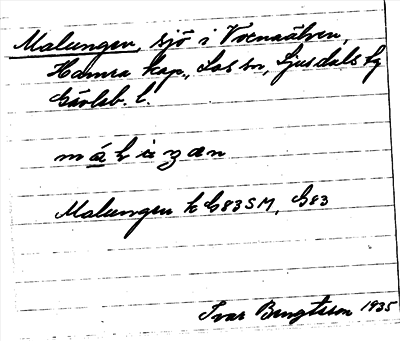 Malungen, sjö i Voxnaälven,
Hamra kap., Los sn, Ljusdals tg
Gävleb. l.
Malungen k G83SM, G83
Ivar Bengtsson 1935